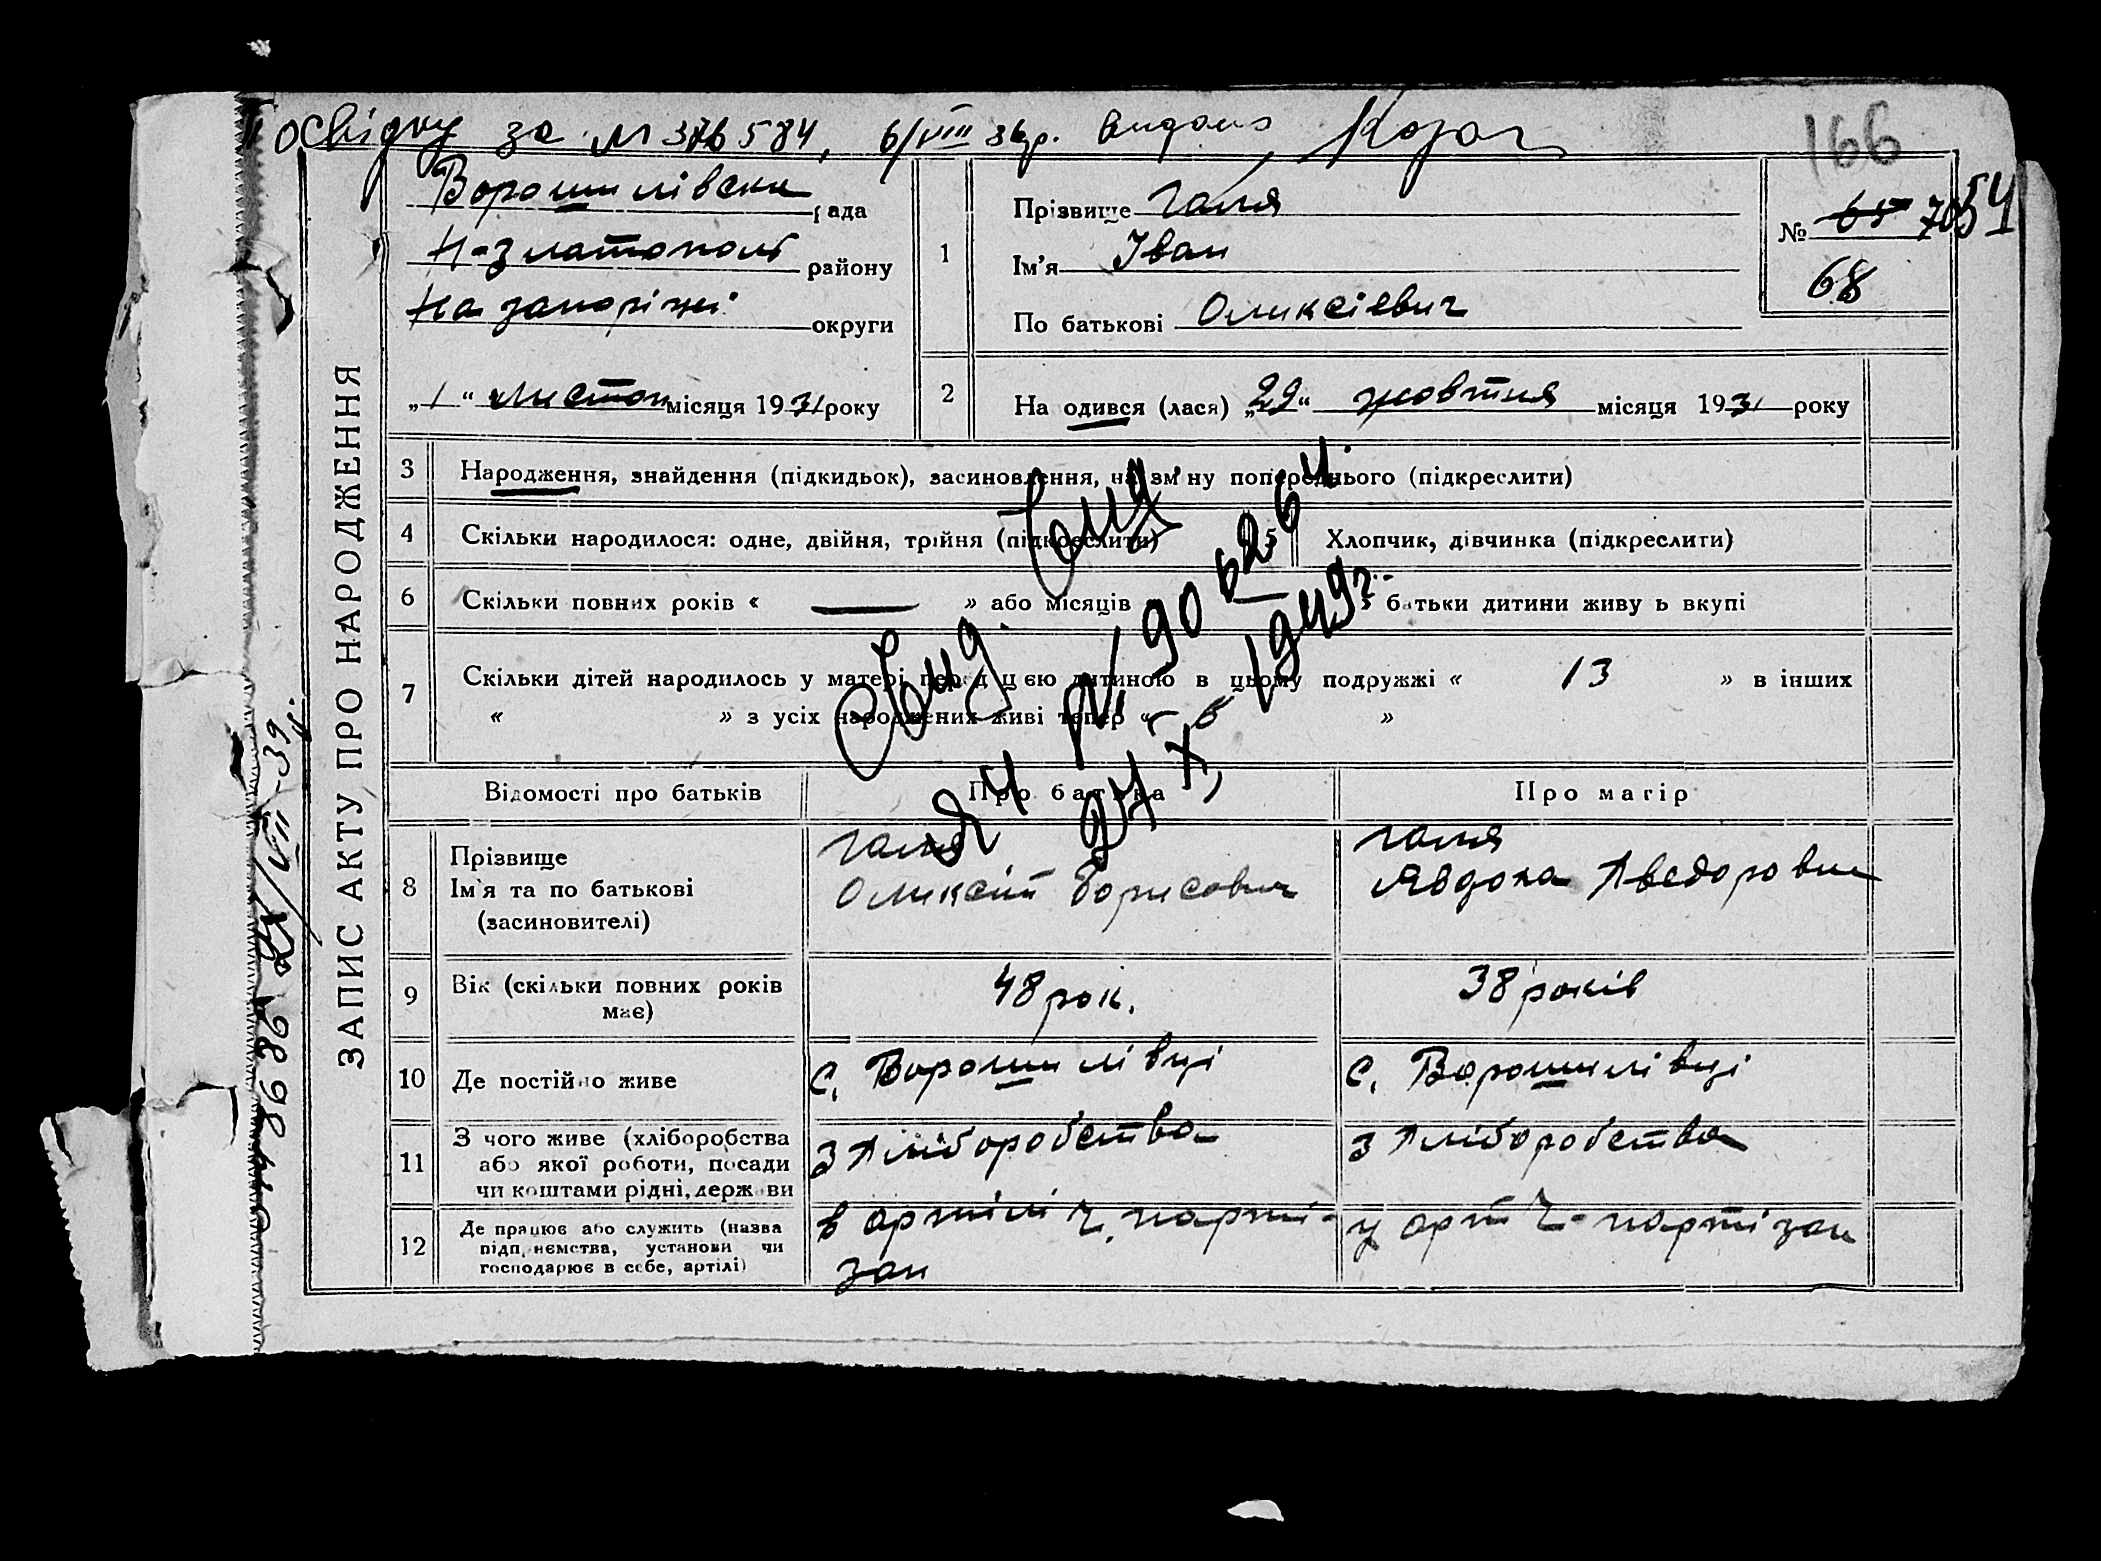 освідку за № 376584, 6/VIII 36р. видано
166
ЗАПИС АКТУ ПРО НАРОДЖЕННЯ
Ворошилівська рада
Н-Златопол району
На запоріжі округи
„1“ листоп місяця 1931 року
1
Прізвище Галя
Ім’я Іван
По батькові Оликсієвич
№ 65 70 54
68
2
На одився (лася) „29“ жовтня місяця 1931 року
3 Народження, знайдення (підкидьок), засиновлення, на зм ну попереднього (підкреслити)
4 Скільки народилося: одне, двійня, трійня (підкреслити) 5 Хлопчик, дівчинка (підкреслити)
6 Скільки повних років « — » або місяців батьки дитини живу ь вкупі
7 Скільки дітей народилось у матері перед цією дитиною в цьому подружжі « 13 » в інших
« » з усіх народжених живі тепер « 6 »
Відомості про батьків Про батька Про матір
8 Прізвище
Ім’я та по батькові
(засиновителі)
Галя
Оликсій Борисович
Галя
Явдоха Хведоровна
9 Вік (скільки повних років
має)
48 рок.
38 років
10 Де постійно живе
с. Ворошилівці
с. Ворошилівці
11 З чого живе (хліборобства
або якої роботи, посади
чи коштами рідні, держави
З хліборобства
З хліборобства
12 Де працює або служить (назва
підприємства, установи чи
господарює в себе, артілі)
в артілі ч. парті-
зан
у арт ч-партізан